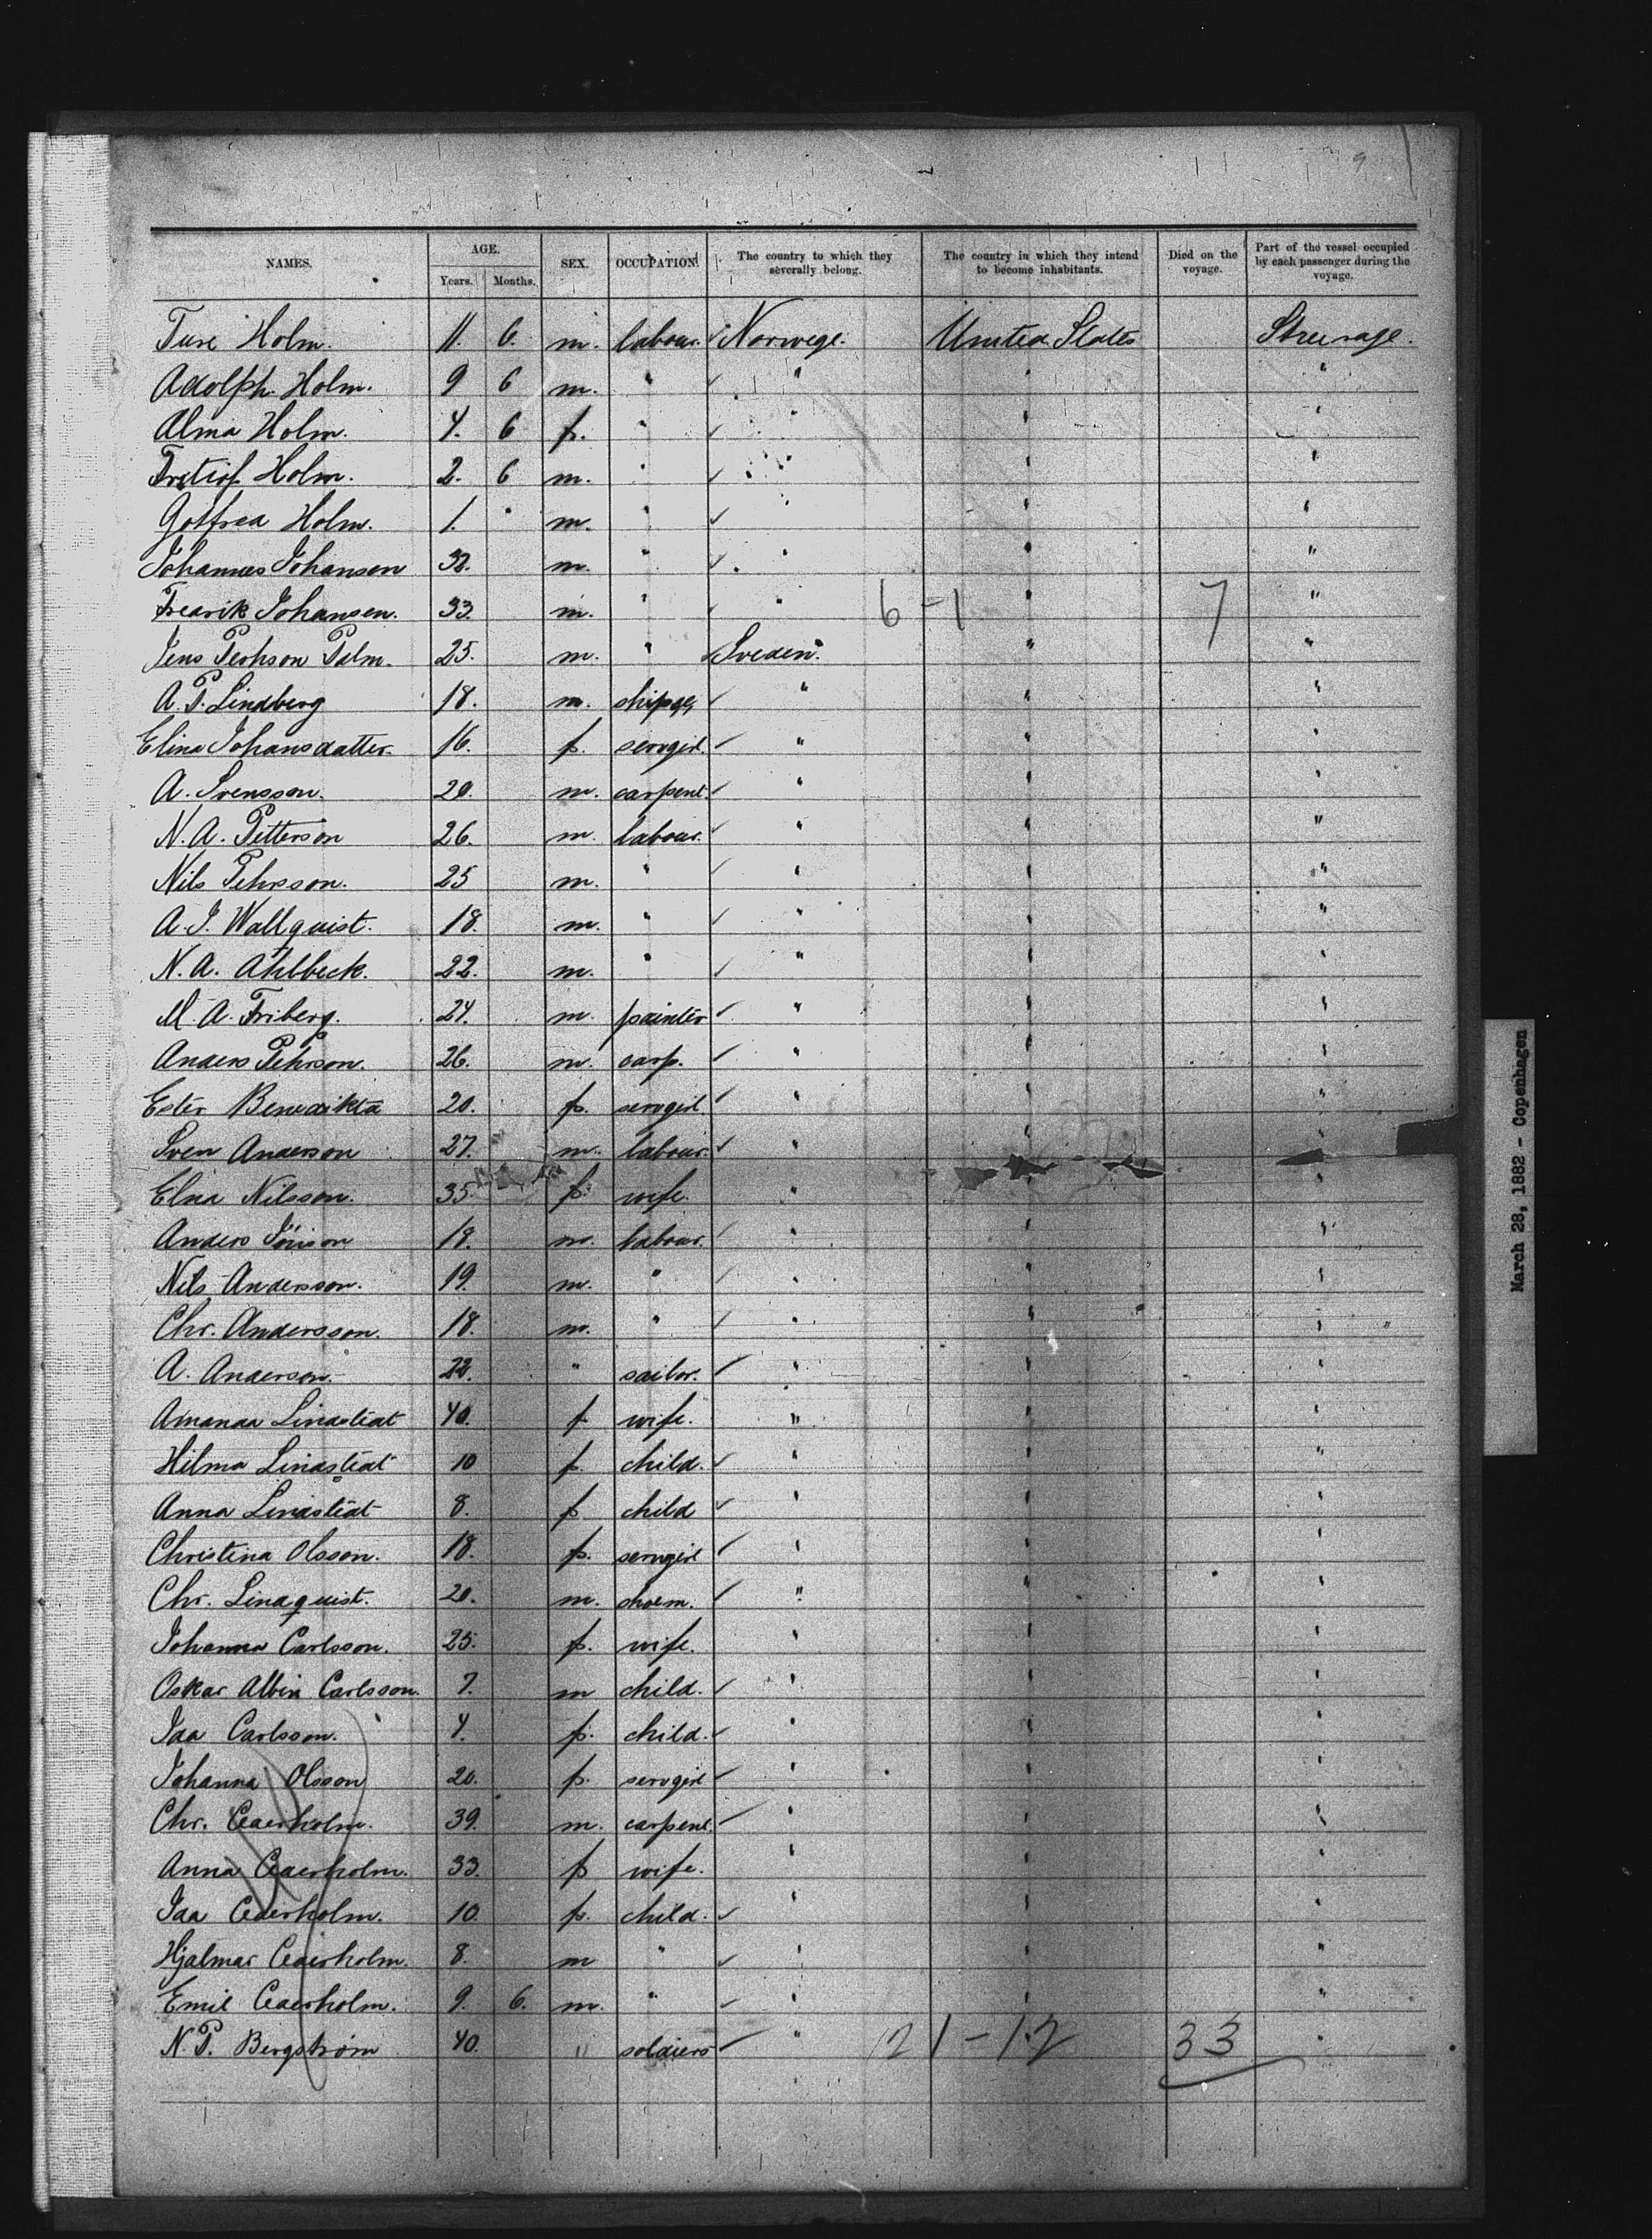 9
NAMES. AGE. SEX. OCCUPATION. The country to which they severally belong. The country in which they intend to become inhabitants. Died on the voyage. Part of the vessel occupied by each passenger during the voyage.
Years. Months.
Ture Holm. 11. 6. m. labour. Norwege. United States Streerage.
Adolph. Holm. 9 6 m. " " " "
Alma Holm. 4. 6 f. " " " "
Fritiof Holm. 2. 6 m. " " " "
Gotfred Holm. 1. " m. " " " "
Johannes Johansen 32. m. " " " "
Fredrik Johansen. 33. m. " " 6 - 1 " 7 "
Jens Pehson Palm. 25. m. " Sveden. " "
A. P. Lindberg 18. m. " " "
Elina Johansdatter. 16. f. servgirl. " " "
A. Svensson. 20. m. carpent. " " "
N. A. Petterson 26. m. labour. " " "
Nils Pehrsson. 25 m. " " " "
A. J. Wallquist. 18. m. " " " "
N. A. Ahlbeck. 22. m. " " " "
M. A. Friberg. 24. m. painter " " "
Anders Pehrson. 26. m. carp. " " "
Ester Benedikta 20. f. servgirl. " " "
Sven Anderson 27. m. labour. " " "
Elna Nilsson. 35. f. wife. " "
Anders Jönson 19. m. labour. " " "
Nils Andersson. 19. m. " " " "
Chr. Andersson. 18. m. " " " "
A. Anderson. 22. " sailor. " " "
Amanda Lindstedt 40. f. wife. " " "
Hilma Lindstedt 10 f. child. " " "
Anna Lindstedt 8. f. child " " "
Christina Olsson. 18. f. servgirl " " "
Chr. Lindquist. 20. m. shoem. " " "
Johanna Carlsson. 25. f. wife. " " "
Oskar Albin Carlsson. 7. m child. " " "
Ida Carlsson. 4. f. child. " " "
Johanna Olsson 20. f. servgirl " " "
Chr. Cederholm. 39. m. carpent. " " "
Anna Cederholm. 33. f wife. " " "
Ida Cederholm. 10. f. child. " " "
Hjalmar Cederholm. 8. m " " " "
Emil Cederholm. 9. 6. m. " " " "
N. P. Bergström 40. " soldiers " 21 - 12 33 "
March 28, 1882 - Copenhagen